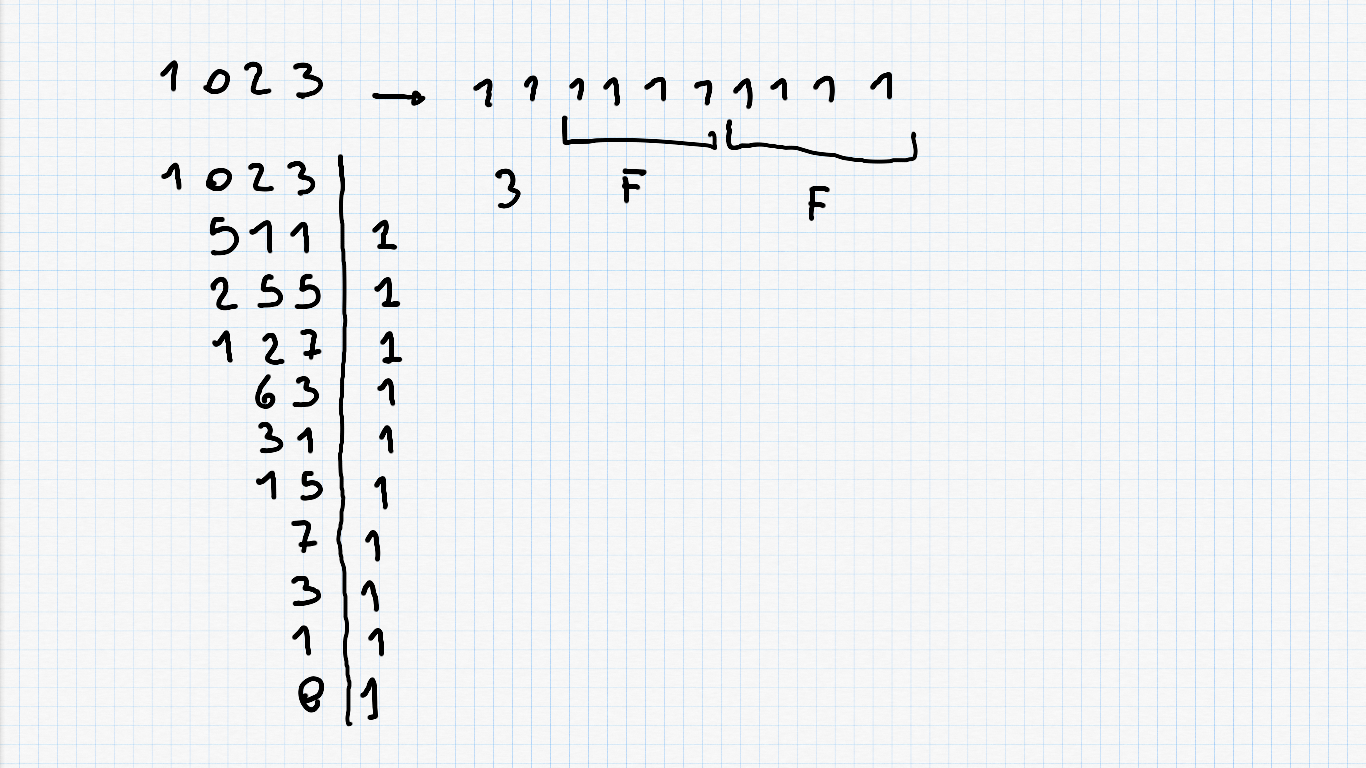 1023 → 1111111111
3 F F
1023
511 1
255 1
127 1
63 1
31 1
15 1
7 1
3 1
1 1
0 1